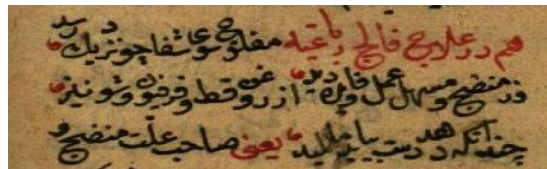 هم در علاج فالج رباعیه مفلوج سوی شفا چو نزدیک رسد
وز منضج و مسهل عمل فایده دید از روغن قسط و فرفیون و شونیز
چندانکه دهد دست بباید مالید یعنی صاحب علت منضج و